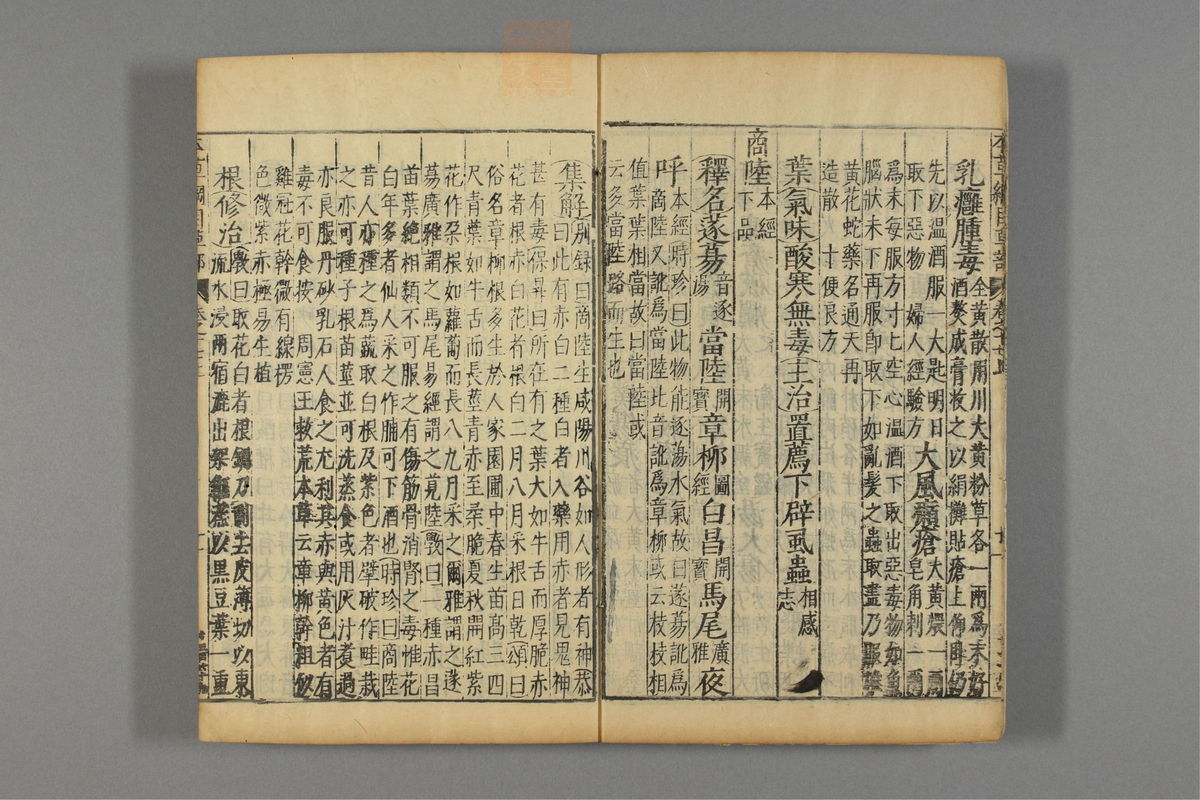 乳癰腫毒金黃散用川大黃粉草各一兩爲末好
酒熬成膏收之以絹攤貼瘡上仰臥仍
先以溫酒服一大匙明日
取下惡物 婦人經驗方
大風癩瘡大黃煨一兩
皂角刺一兩
爲末每服方寸匕空心溫酒下取出惡毒物如魚
腦狀未下再服卽取下如亂髮之蟲取盡乃
黃花蛇藥名通天再
造散 十便良方
葉氣味酸寒無毒主治置薦下辟虱蟲相感
志
商陸本經
下品
釋名蓫募音逐
湯當陸開
寶章柳圖
經白昌開
寶馬尾廣
雅夜
呼本經時珍曰此物能逐蕩水氣故曰蓫募訛爲
商陸又訛爲當陸北音訛爲章柳或云枝枝相
值葉葉相當故曰當陸或
云多當陸路而生也
集解別録曰商陸生咸陽川谷如人形者有神恭
曰此有赤白二種白者入藥用赤者見鬼神
甚有毒保昇曰所在有之葉大如牛舌而厚脆赤
花者根赤白花者根白二月八月采根日乾頌曰
俗名章柳根多生於人家園圃中春生苗髙三四
尺青葉如牛舌而長莖青赤至柔脆夏秋開紅紫
花作朶根如蘿蔔而長八九月采之爾雅謂之蓫
募廣雅謂之馬尾易經謂之莧陸斅曰一種赤昌
苗葉絶相類不可服之有傷筋骨消腎之毒惟花
白年多者仙人采之作脯可下酒也時珍曰商陸
昔人亦種之爲蔬取白根及紫色者擘破作畦栽
之亦可種子根苗莖並可洗蒸食或用灰汁煮過
亦良服丹砂乳石人食之尤利其赤與黃色者有
毒不可食按 周憲王救荒本草云章柳幹粗似
雞冠花幹微有線楞
色微紫赤極易生植
根修治斅曰取花白者根銅刀刮去皮薄切以東
流水浸兩宿漉出架甑蒸以黑豆葉一重